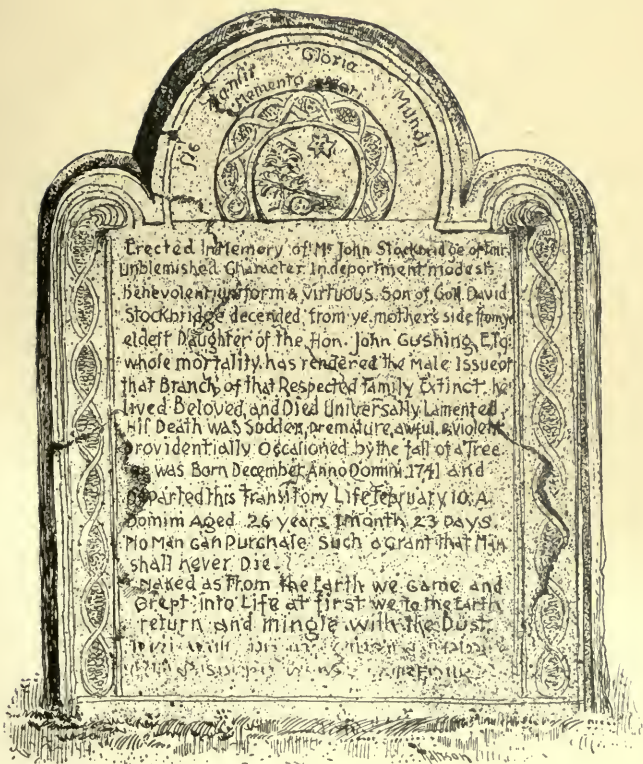 Sic Transit Gloria Mundi
Memento Mori
Erected In Memory of Mr John Stockbridge of
unblemished Character In deportment modest
Benevolent uniform & virtuous. Son of Coll David
Stockbridge decended from ye mother's side from ye
eldest Daughter of the Hon. John Cushing, Esq
whose mortality has rendered the Male Issue of
that Branch of that Respected family Extinct. he
lived Beloved, and Died Universally Lamented.
His Death was Sudden, premature, awful, & violent
providentially Occasioned by the fall of a Tree
he was Born December Anno Domini 1741 and
Departed this Transitory Life February 10, A.
Domini Aged 26 years 1 month 23 Days.
No Man Can Purchase Such a Grant that Man
shall never Die.
Naked as from the Earth we Came and
Crept into Life at first we to the Earth
return and mingle with the Dust